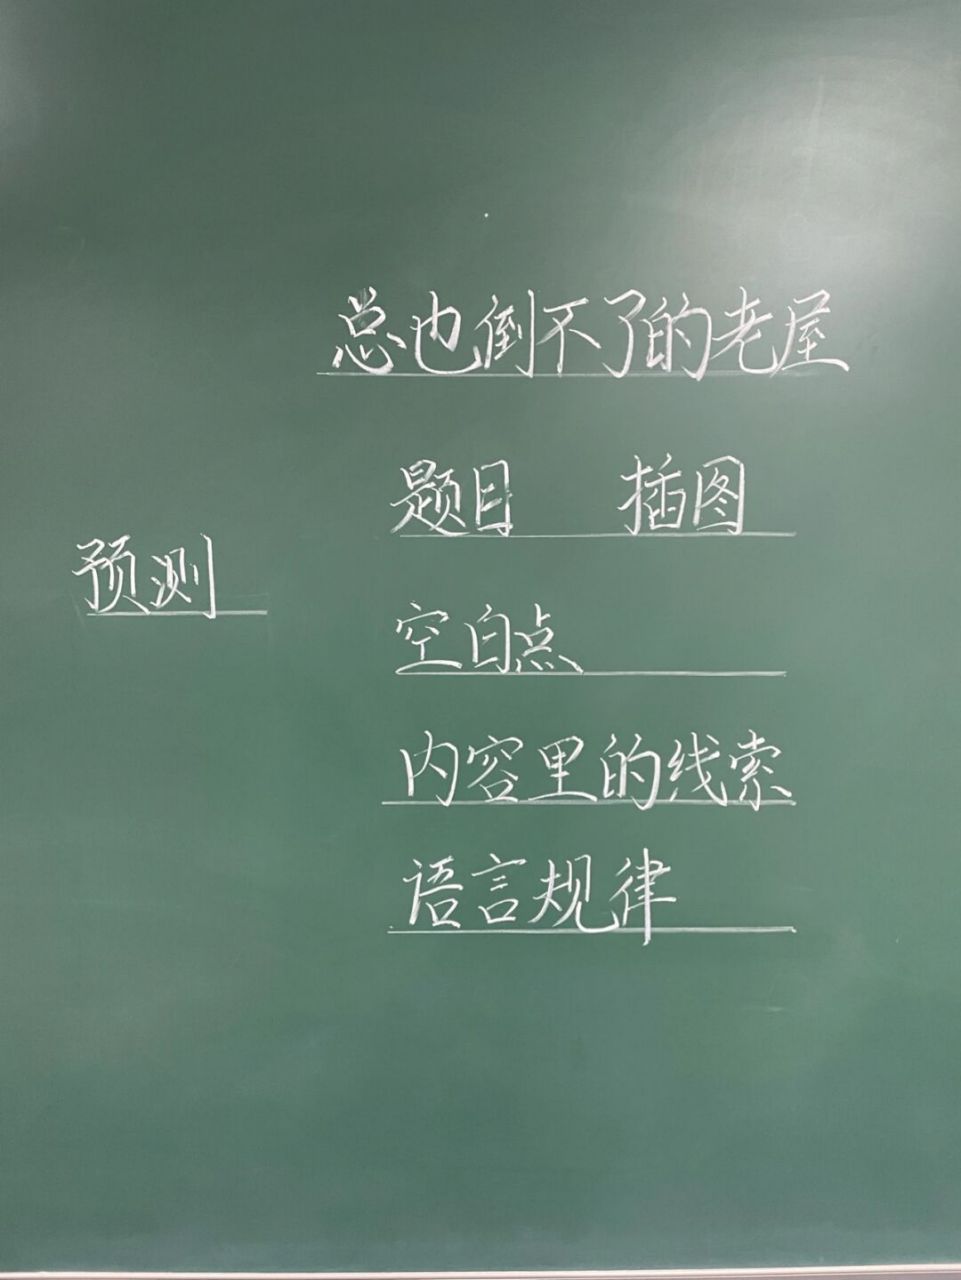 总也倒不了的老屋
题目 插图
预测
空白点
内容里的线索
语言规律